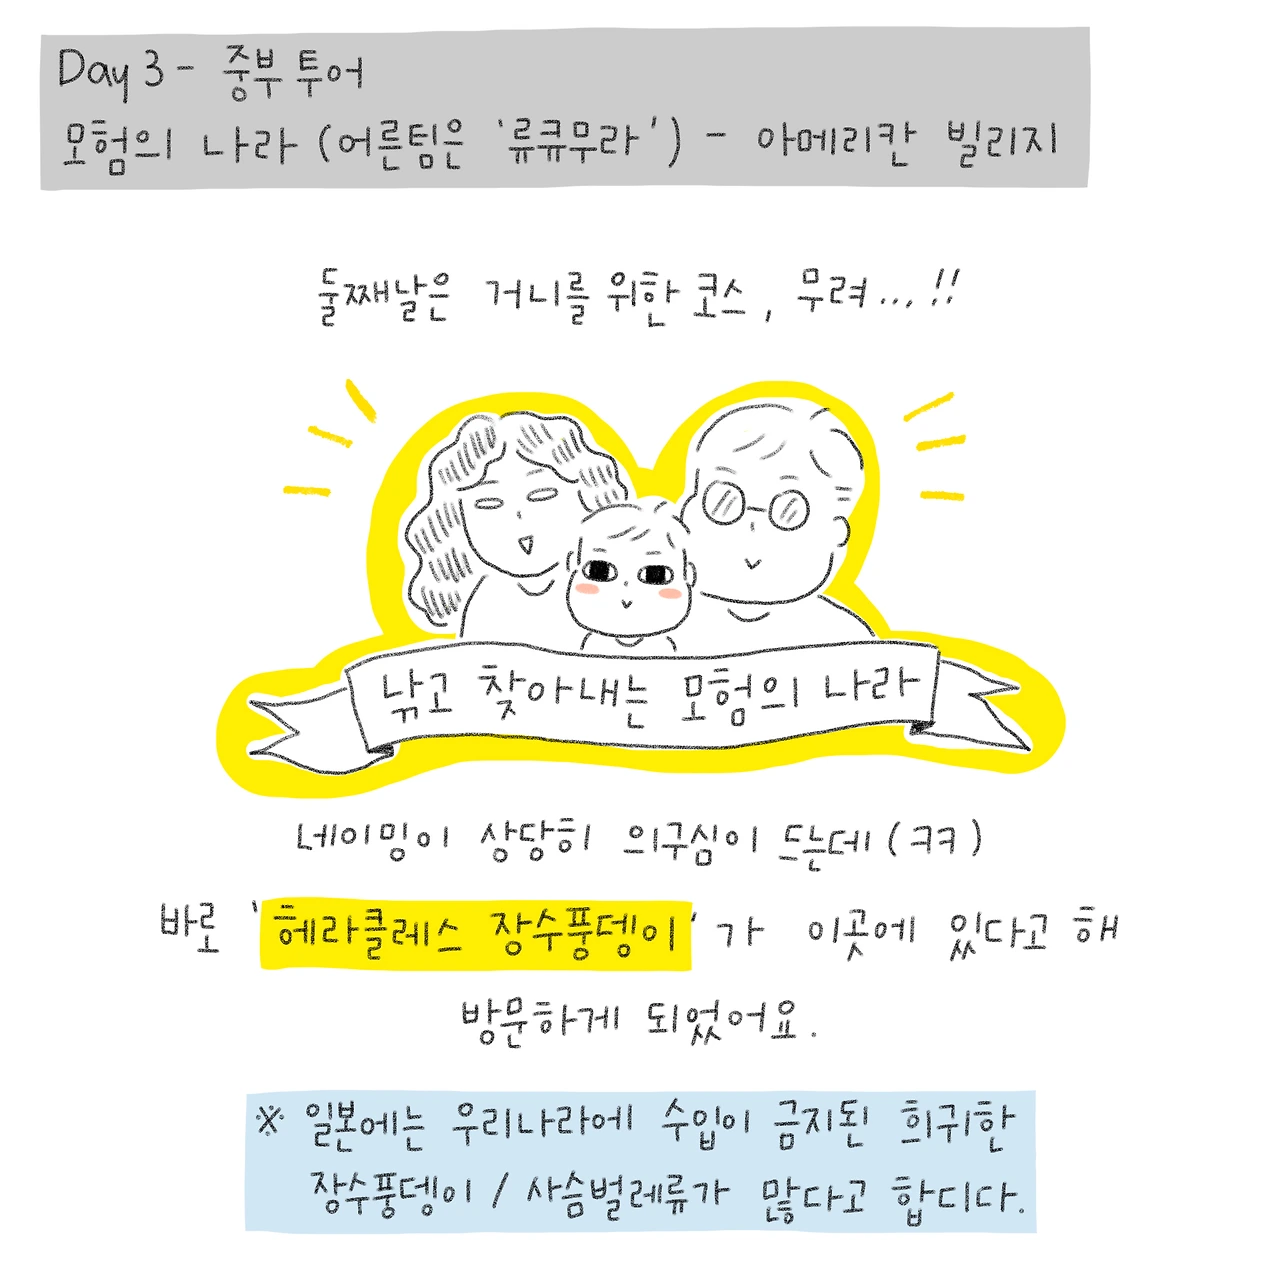 Day 3 - 중부 투어
모험의 나라 (어른팀은 '류큐무라') - 아메리칸 빌리지
둘째날은 거니를 위한 코스, 무려...!!
낚고 찾아내는 모험의 나라
네이밍이 상당히 의구심이 드는데 (ㅋㅋ)
바로 '헤라클레스 장수풍뎅이'가 이곳에 있다고 해
방문하게 되었어요.
※ 일본에는 우리나라에 수입이 금지된 희귀한
장수풍뎅이 / 사슴벌레류가 많다고 합디다.